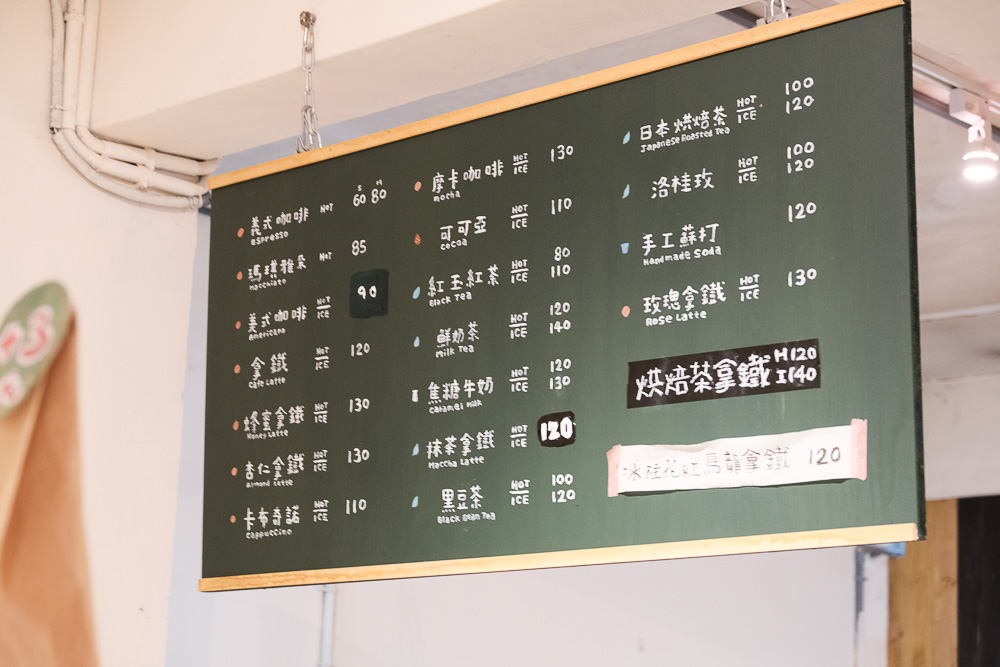 義式咖啡 HOT S 60 M 80
espresso
瑪琪雅朵 HOT 85
Macchiato
美式咖啡 HOT/ICE 90
Americano
拿鐵 HOT/ICE 120
Cafe Latte
蜂蜜拿鐵 HOT/ICE 130
Honey Latte
杏仁拿鐵 HOT/ICE 130
Almond Latte
卡布奇諾 HOT/ICE 110
Cappuccino
摩卡咖啡 HOT/ICE 130
mocha
可可亞 HOT/ICE 110
cocoa
紅玉紅茶 HOT/ICE 80 110
Black Tea
鮮奶茶 HOT/ICE 120 140
Milk Tea
焦糖牛奶 HOT/ICE 120 130
Caramel Milk
抹茶拿鐵 HOT/ICE 120
Maccha Latte
黑豆茶 HOT/ICE 100 120
Black Bean Tea
日本烘焙茶 HOT/ICE 100 120
Japanese Roasted Tea
洛桂玫 HOT/ICE 100 120
手工蘇打 120
Handmade Soda
玫瑰拿鐵 HOT/ICE 130
Rose Latte
烘焙茶拿鐵 H120 I140
冰桂花紅烏龍拿鐵 120